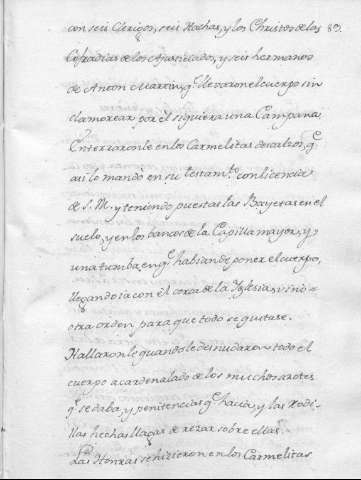 con seis Clerigos, seis Hachas, y los Christos de las 89.
Cofradias de los Ajusticiados, y seis hermanos
de Anton Martin, q.e llevaron el cuerpo sin
clamorear por el siquiera una Campana.
Enterraronle en los Carmelitas descalzos, q.e
asi lo mandó en su testam.to con licencia
de S. M. y teniendo puestas las Bayetas en el
suelo, y en los bancos de la Capilla mayor, y
una tumba, en q.e habian de poner el cuerpo,
llegando ia con él cerca de la Iglesia, vino
otra orden, para que todo se quitase.
Hallaronle quando le desnudaron todo el
cuerpo acardenalado de los muchos azotes
q.e se daba, y penitencias q.e hacia, y las Rodi-
llas hechas llagas de rezar sobre ellas.
Las Honras se hizieron en los Carmelitas